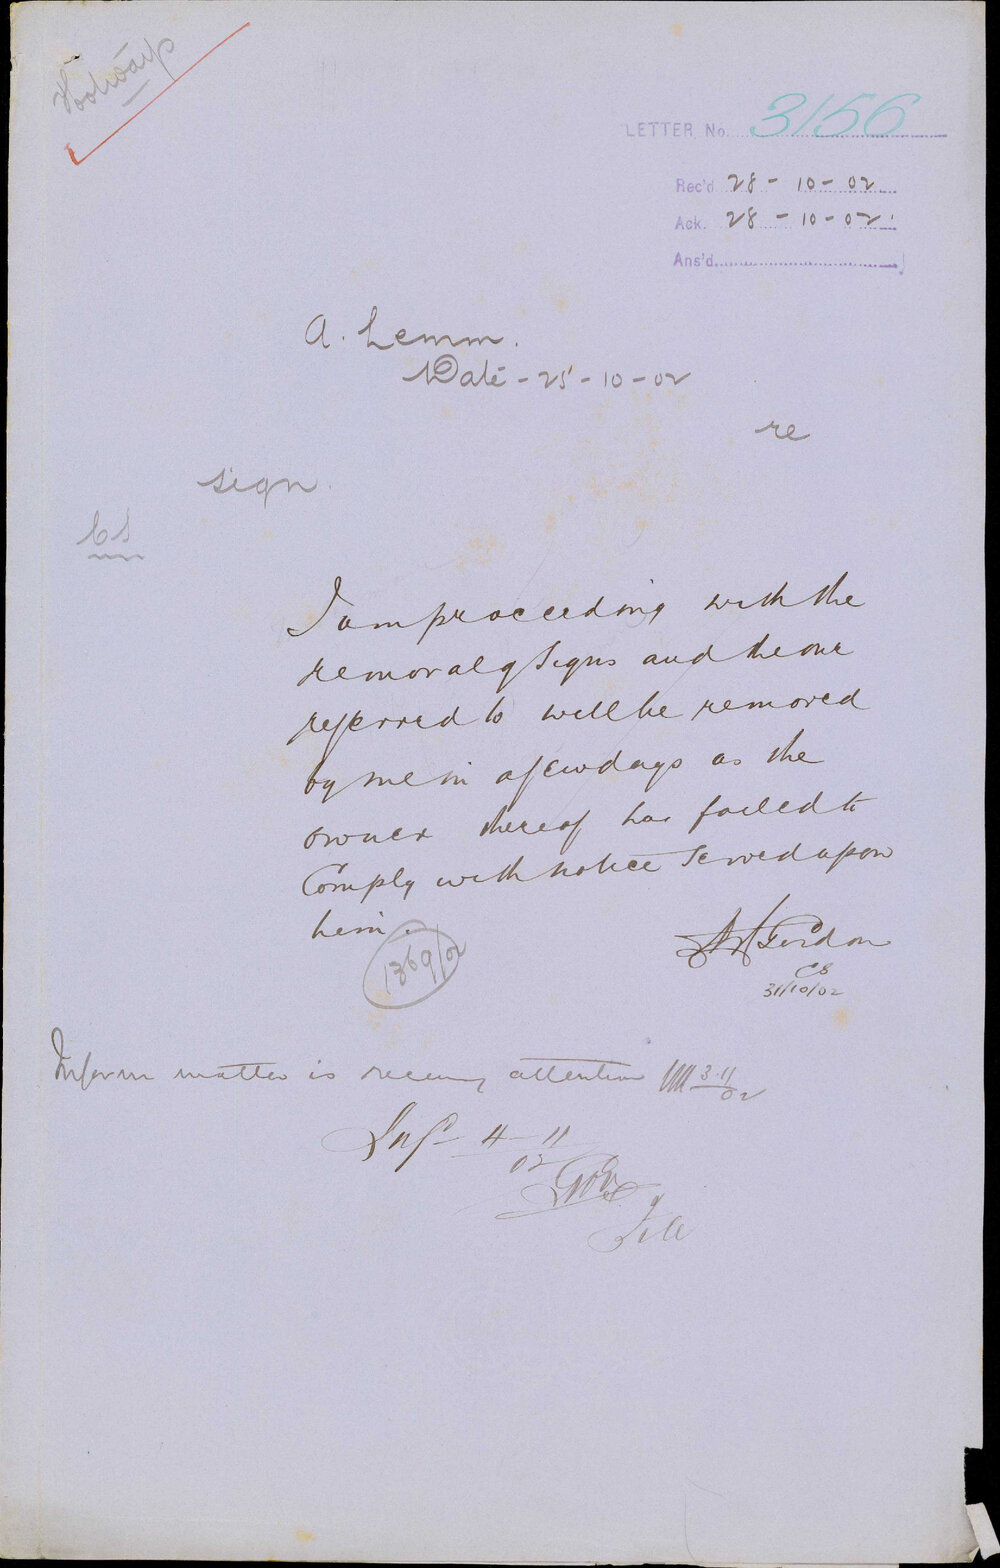 Footway
LETTER No. 3156
Rec'd 28-10-02
Ack. 28-10-02
Ans'd
A. Lemm.
Date - 25-10-02
re
sign.
CS
I am proceeding with the
removal of signs and the one
referred to will be removed
by me in a few days as the
owner thereof has failed to
Comply with notice served upon
him.
Gordon
CS
31/10/02
1369/02
Inform matter is receiving attention 3.11/02
Inf^d 4-11
02
File